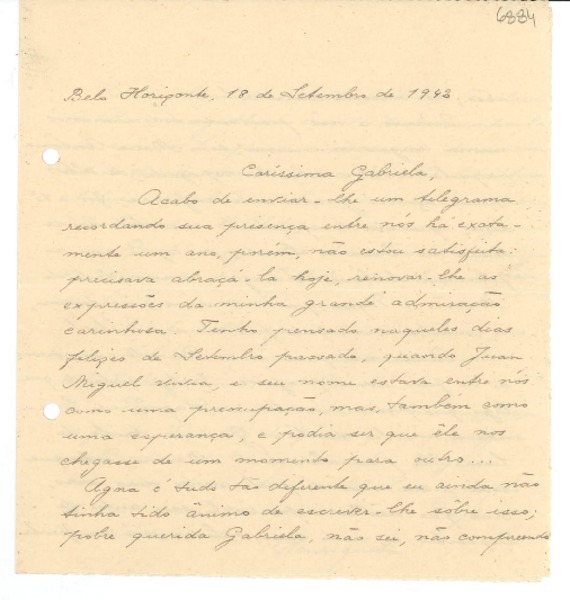 6884
Belo Horizonte, 18 de Setembro de 1943.
Caríssima Gabriela,
Acabo de enviar-lhe um telegrama
recordando sua presença entre nós há exata-
mente um ano, porém, não estou satisfeita:
precisava abraçá-la hoje, renovar-lhe as
expressões da minha grande admiração
carinhosa. Tenho pensado naqueles dias
felizes de Setembro passado, quando Juan
Miguel vivia, e seu nome estava entre nós
como uma preocupação, mas, também como
uma esperança, e podia ser que êle nos
chegasse de um momento para outro...
Agora é tudo tão diferente que eu ainda não
tinha tido ânimo de escrever-lhe sôbre isso;
pobre querida Gabriela, não sei, não compreendo